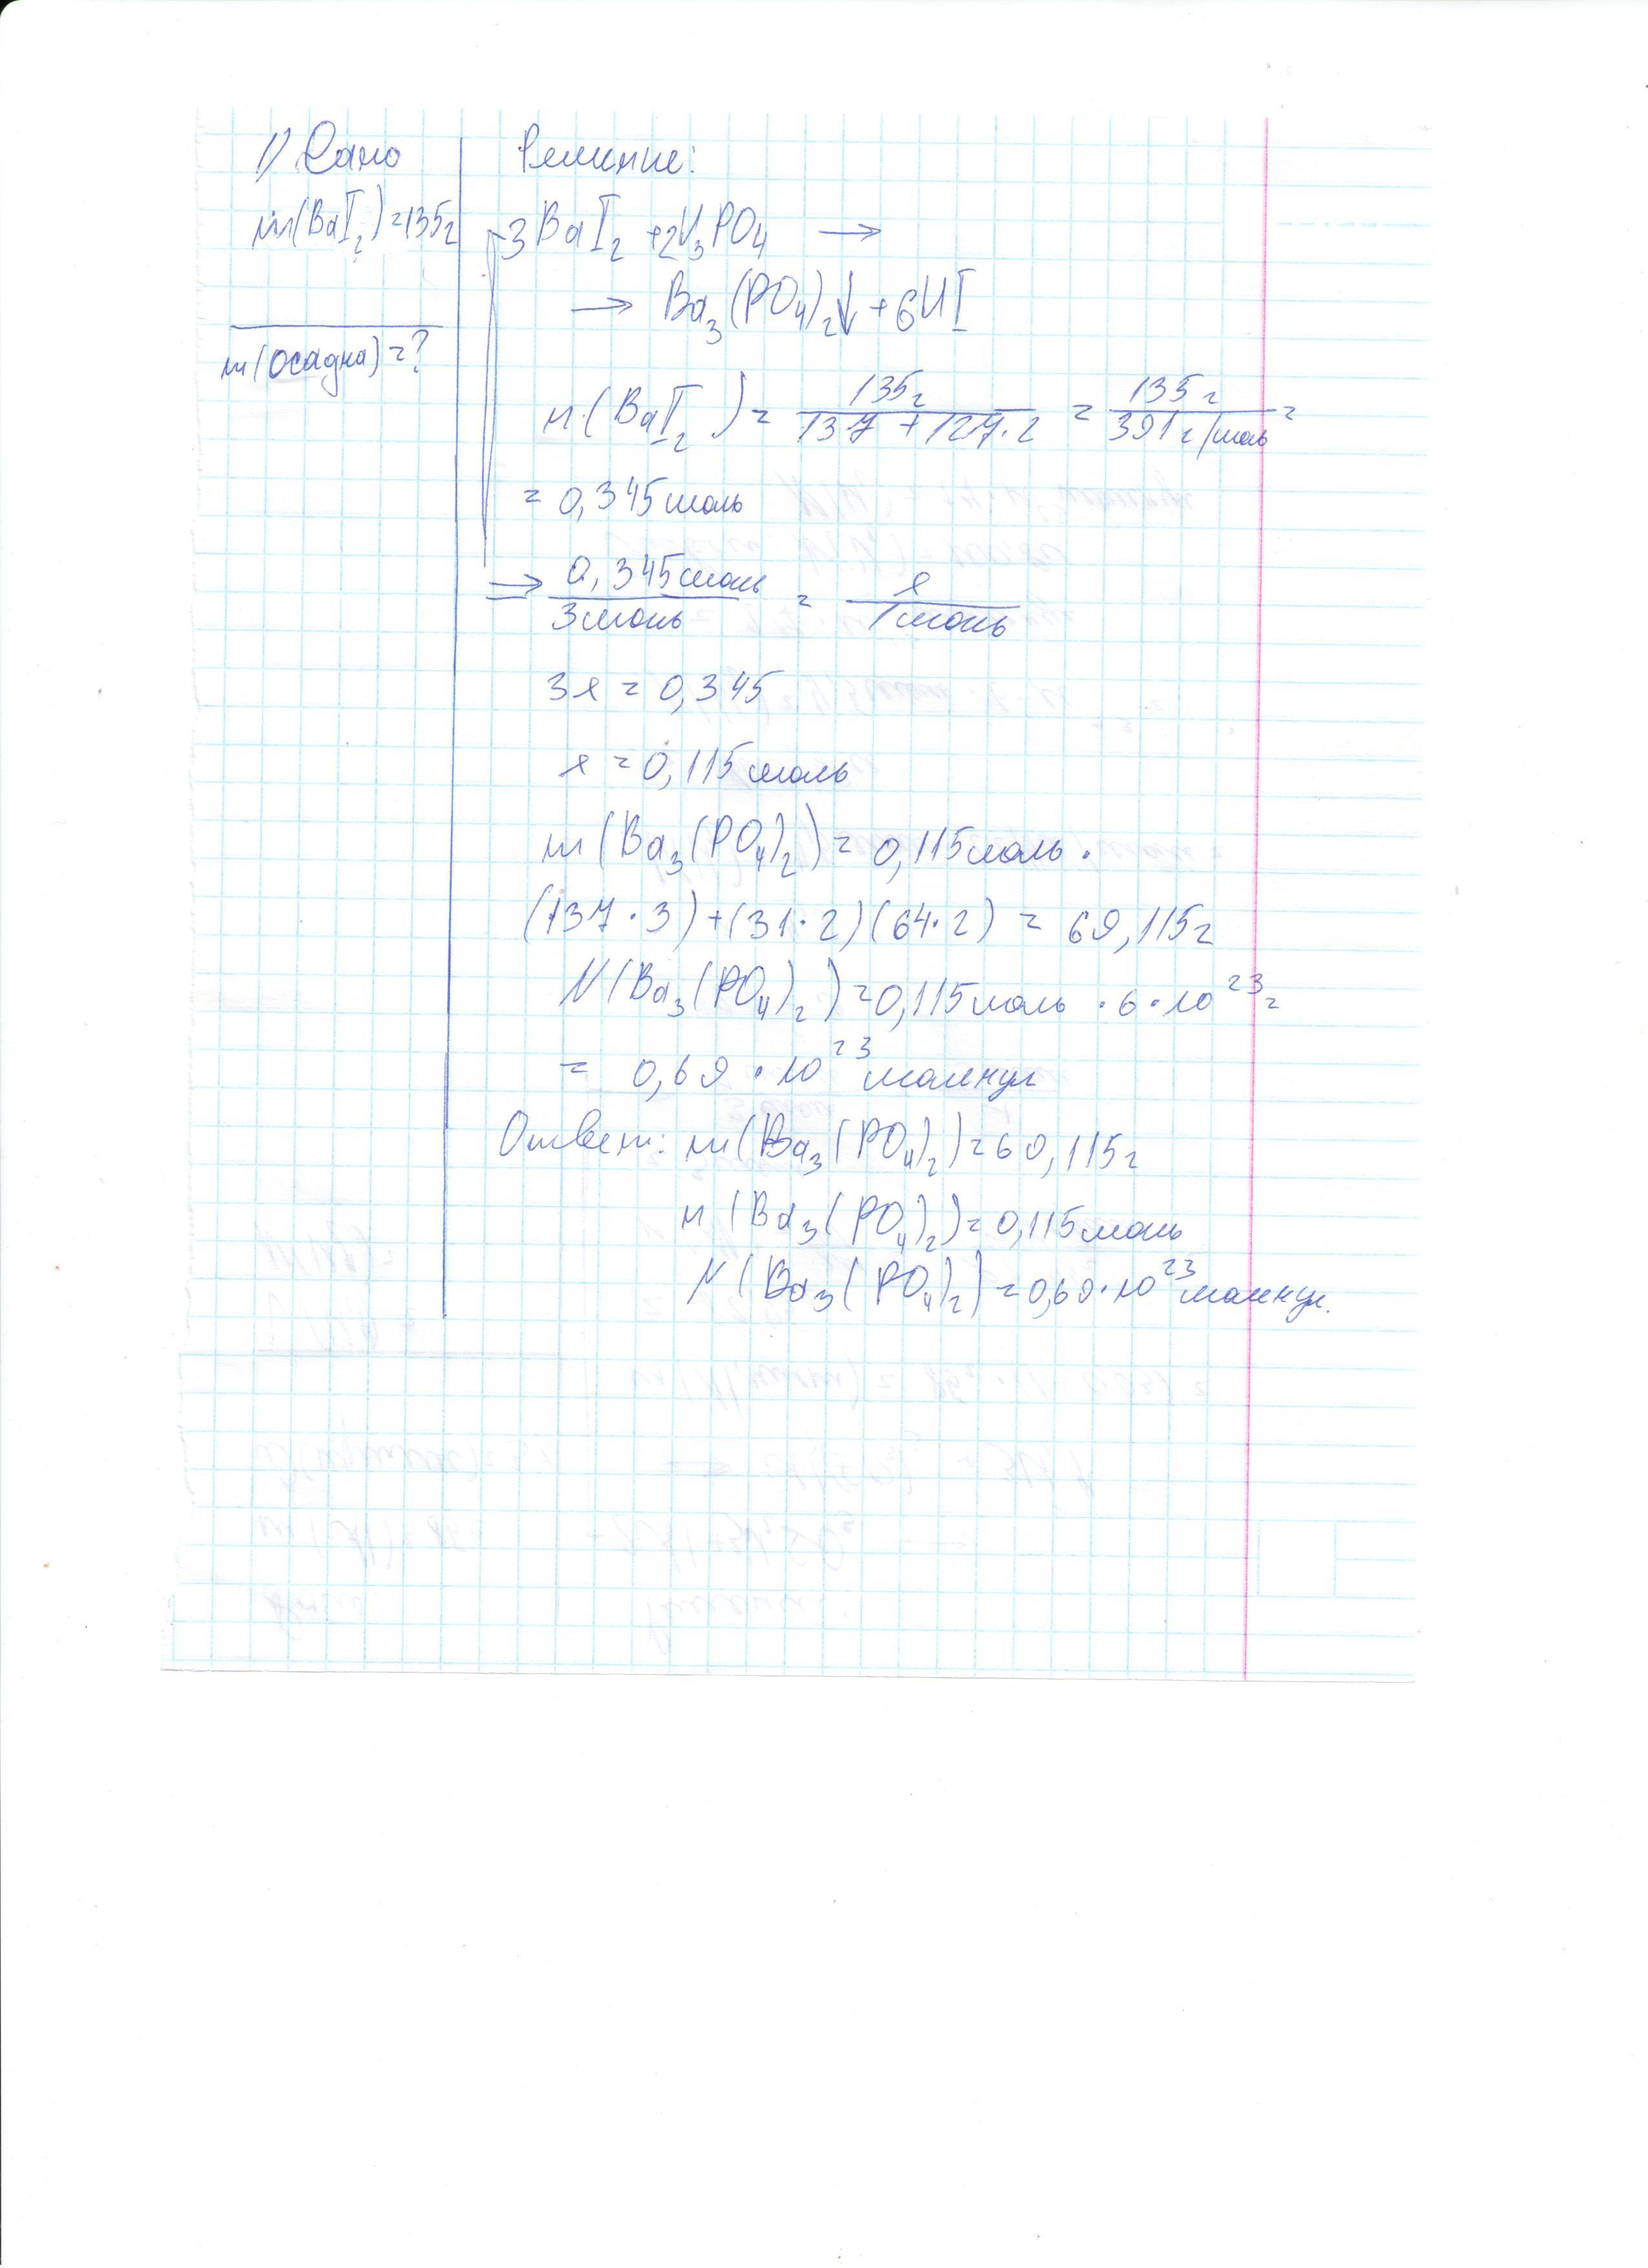 1) Дано
m(BaI₂)=135г
m(осадка)=?
Решение:
3BaI₂ +2H₃PO₄ →
→ Ba₃(PO₄)₂↓ +6HI
n(BaI₂)= 135г / 137+127·2 = 135г / 391г/моль =
= 0,345моль
⇒ 0,345моль / 3моль = x / 1моль
3x = 0,345
x = 0,115моль
m(Ba₃(PO₄)₂)= 0,115моль ·
(137·3)+(31·2)(64·2) = 69,115г
N(Ba₃(PO₄)₂)=0,115моль ·6·10²³=
= 0,69 ·10²³ молекул
Ответ: m(Ba₃(PO₄)₂)=69,115г
n(Ba₃(PO₄)₂)=0,115моль
N(Ba₃(PO₄)₂)=0,69·10²³молекул.